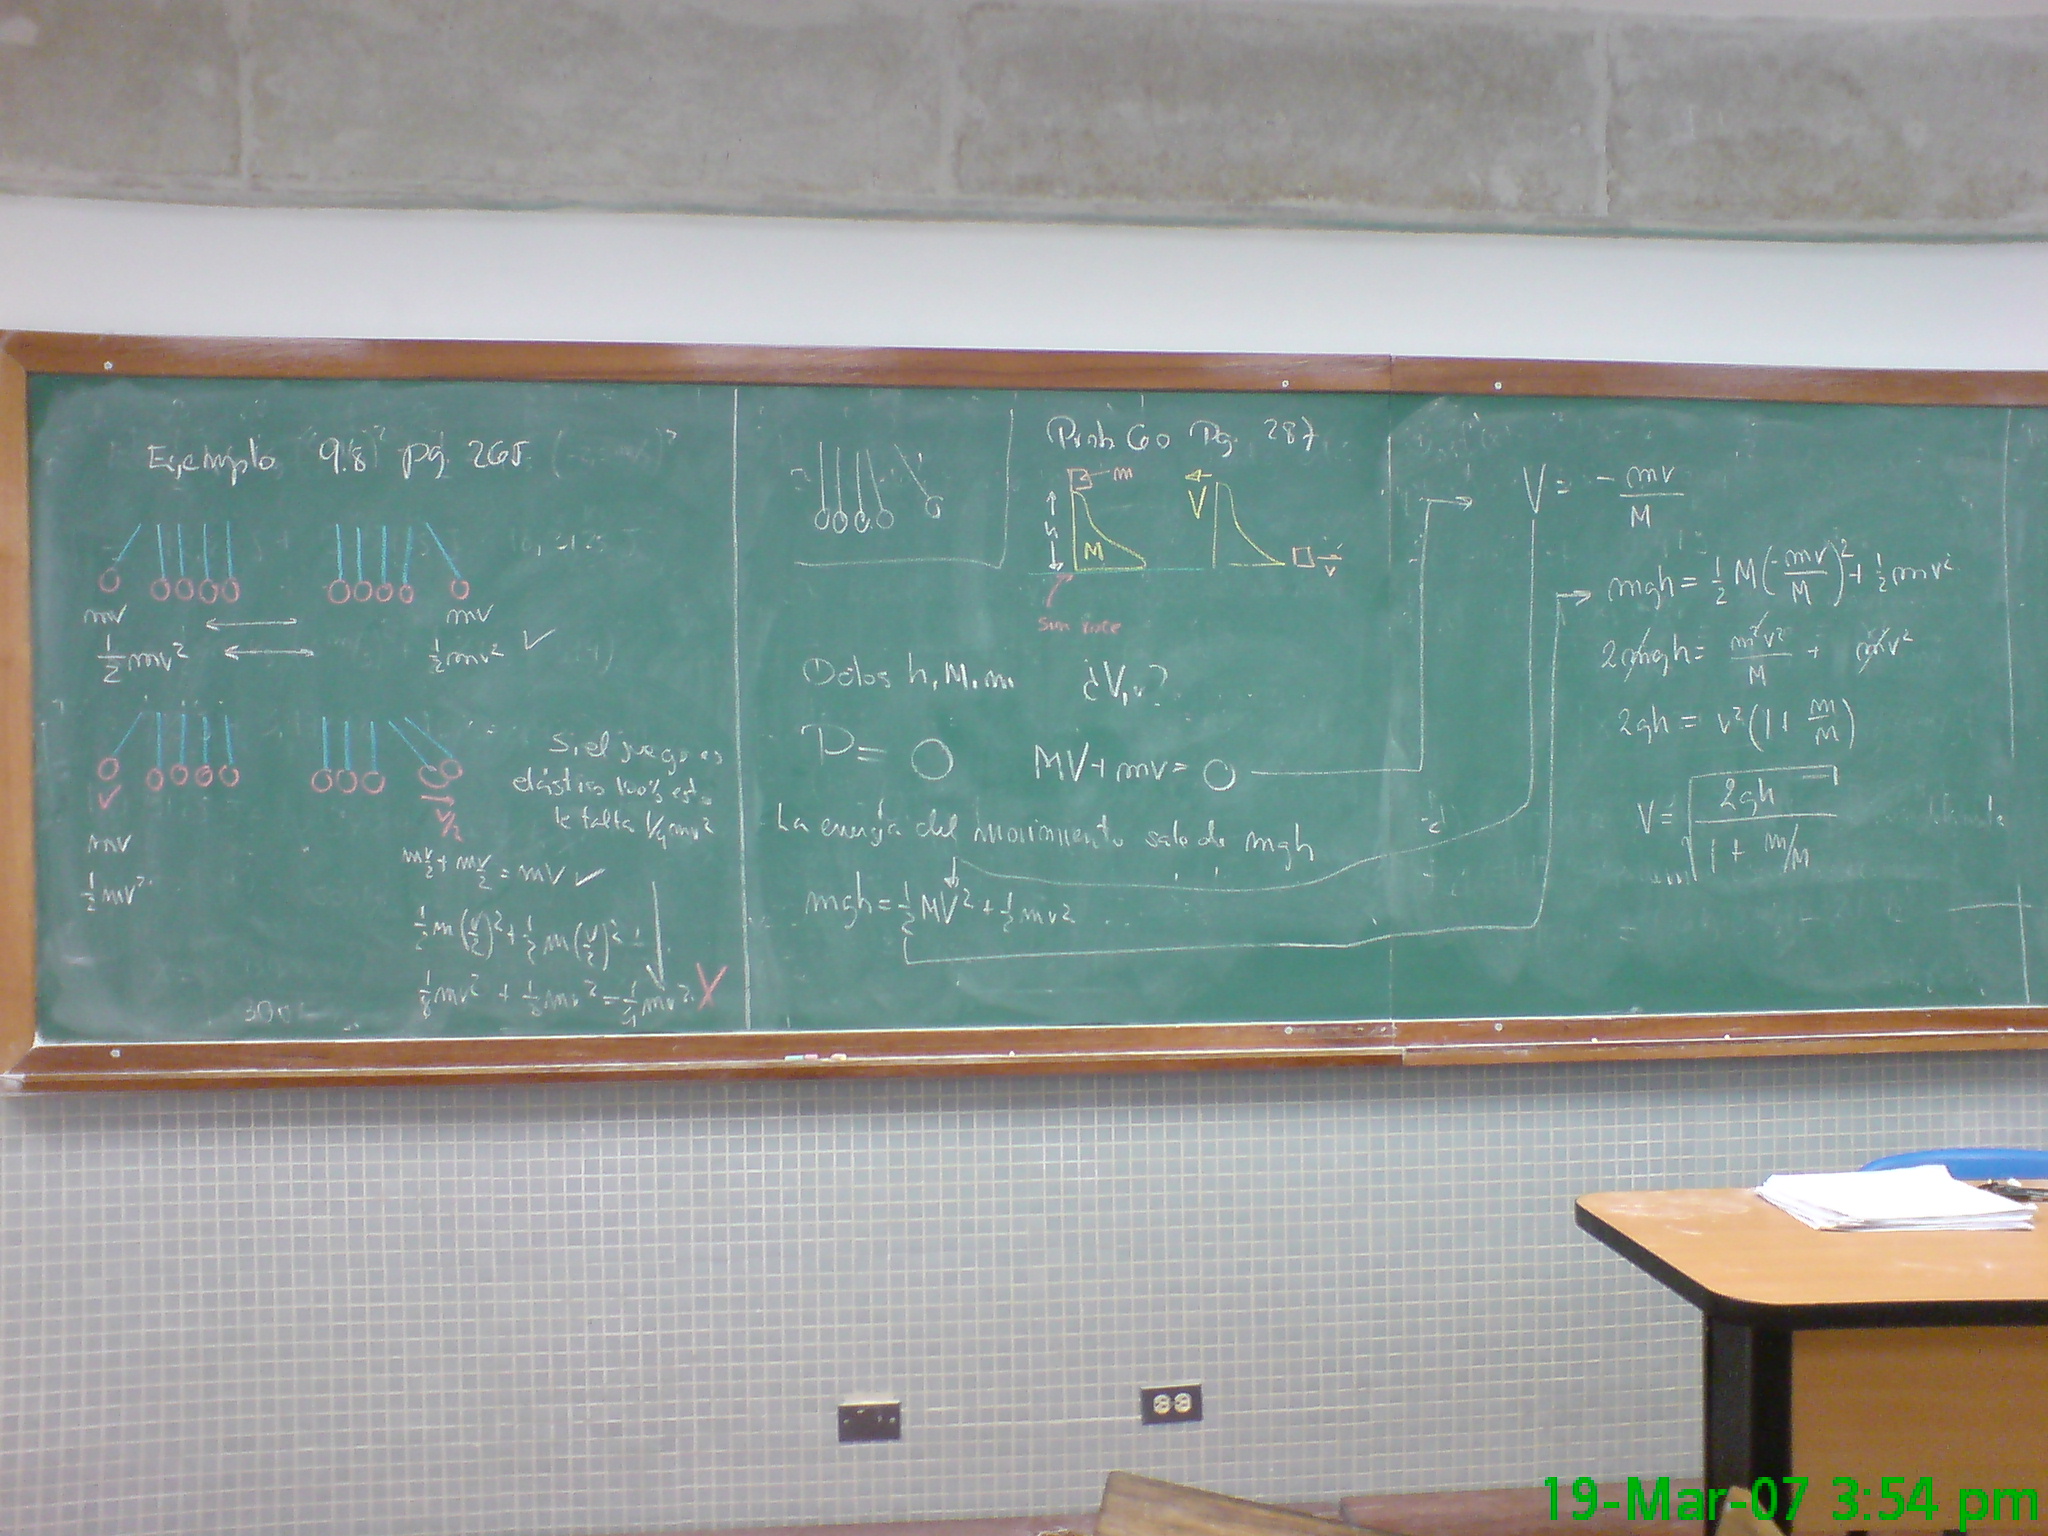 Ejemplo 9.8 pg. 265
mv
mv
½mv²
½mv² ✓
v
v/2
mv
½mv²
Si el juego es
elástico 100% esto
le falta ¼mv²
mv/2 + mv/2 = mv ✓
½m(v/2)² + ½m(v/2)² =
⅛mv² + ⅛mv² = ¼mv² X
Prob 60 Pg. 287
m
h
M
V
v
Dados h, M, m. ¿V, v?
P = 0 MV + mv = 0
La energía del movimiento sale de mgh
mgh = ½MV² + ½mv²
V = -mv/M
mgh = ½M(-mv/M)² + ½mv²
2mgh = m²v²/M + mv²
2gh = v²(1 + m/M)
V = √(2gh/(1 + m/M))
19-Mar-07 3:54 pm